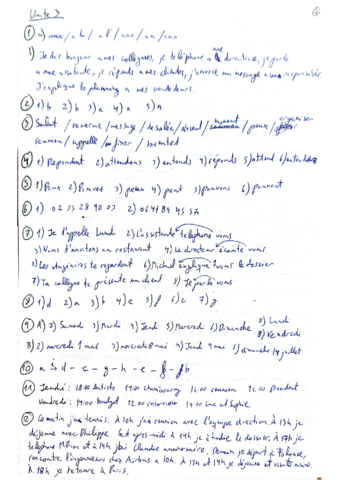 Unité 3
① a) aux / a la / a l' / aux / au / aux
b) Je dis bonjour a mes collegues, je telephone a la directrice, je parle
a une assistante, je réponds a mes clientes, j'envoie un message a un responsable
J'explique le planning a mes vendeurs.
② 1) b 2) b 3) a 4) a 5) a
③ Salut / remercie / message / desolée / absent / / peux / organiser
reunion / appelle / fixer /
④ 1) Repondent 2) attendons 3) entends 4) réponds 5) attend 6) entendez
⑤ 1) Peux 2) Pouvez 3) peux 4) peut 5) pouvons 6) peuvent
⑥ 1) 02 33 28 90 03 2) 06 41 84 45 57
⑦ 1) Je t'appelle Lundi 2) L'assistante telephone vous
3) Vous t'invitons au restaurant 4) Le directeur écoute vous
5) Les stagiaires te regardent 6) Michel explique vous le dossier
7) Ta collegue te présente un client 8) Je parle vous
⑧ 1) d 2) a 3) b 4) e 5) f 6) c 7) g
⑨ A) 2) Samedi 3) Mardi 4) Jeudi 5) Mercredi 6) Dimanche 7) Lundi
8) Vendredi
B) 2) mercredi 1 mai 3) mercredi 8 mai 4) Jeudi 9 mai 5) dimanche 14 juillet
⑩ a i d - c - g - h - e - f - b
⑪ Jeudi: 18.00 batiste 14.00 11.00 reunion 12.00 president
Vendredi: 14:00 budget 12.00 11.00 Luc et Sophie
⑫ Ce matin j'ai tennis. A 10h j'ai reunion avec l'equipe direction. A 13h je
dejeune avec Philippe. Le apres-midi à 14h je étudie le dossier. A 17h je
telephone Milion et à 19h j'ai Claudie anniversaire. Demain je départ à Toulouse,
rencontre l'ingenieurs chez Airbus a 10h. A 13h et 14h je dejeune et visite usine.
A 18h je retourne à Paris.